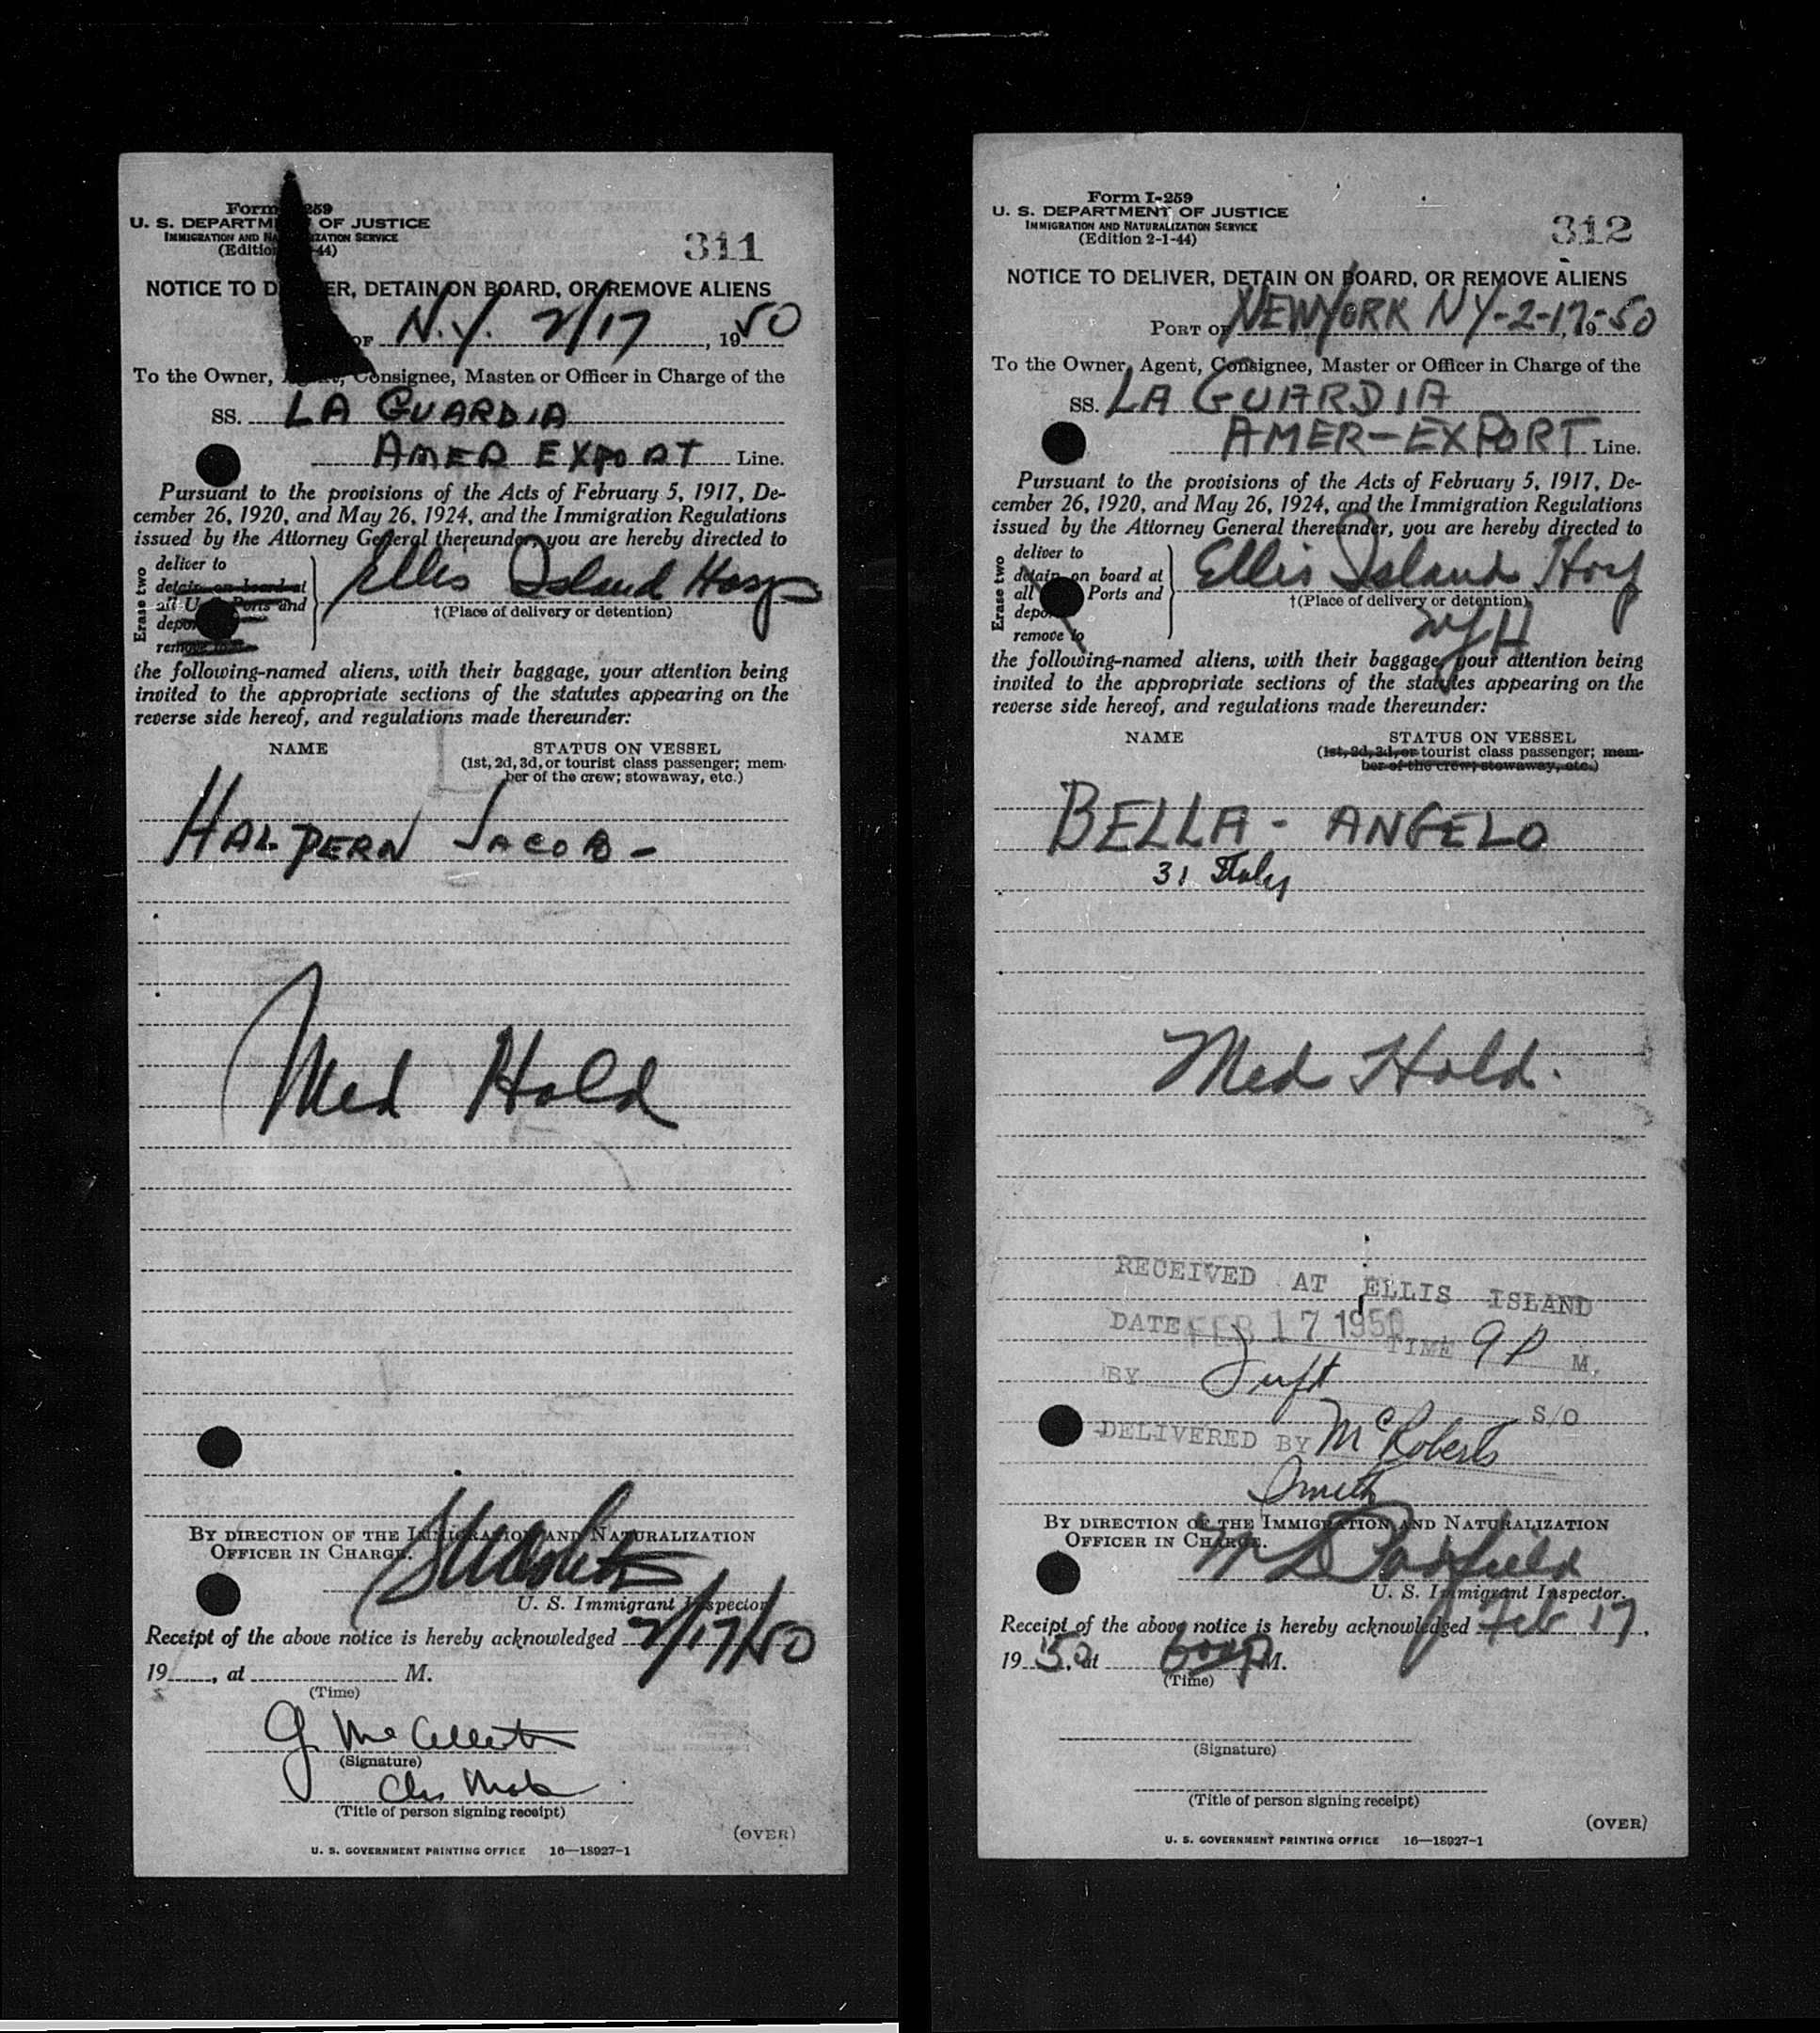 Form 259
U. S. DEPARTM OF JUSTICE
IMMIGRATION AND NA IZATION SERVICE
(Editio -44)
311
NOTICE TO D ER, DETAIN ON BOARD, OR REMOVE ALIENS
OF N.Y. 2/17, 1950
To the Owner, Agent, Consignee, Master or Officer in Charge of the
SS. LA GUARDIA
AMER EXPORT Line.
Pursuant to the provisions of the Acts of February 5, 1917, De-
cember 26, 1920, and May 26, 1924, and the Immigration Regulations
issued by the Attorney General thereunder, you are hereby directed to
Erase two
deliver to
detain on board at
all U Ports and
depo
remove to
Ellis Island Hosp
†(Place of delivery or detention)
the following-named aliens, with their baggage, your attention being
invited to the appropriate sections of the statutes appearing on the
reverse side hereof, and regulations made thereunder:
NAME STATUS ON VESSEL
(1st, 2d, 3d, or tourist class passenger; mem-
ber of the crew; stowaway, etc.)
HALPERN JACOB -
Med Hold
BY DIRECTION OF THE IMMIGRATION AND NATURALIZATION
OFFICER IN CHARGE.
U. S. Immigrant Inspector
Receipt of the above notice is hereby acknowledged 2/17/50
19 , at M.
(Time)
(Signature)
(Title of person signing receipt)
(OVER)
U. S. GOVERNMENT PRINTING OFFICE 16—18927-1
Form I-259
U. S. DEPARTMENT OF JUSTICE
IMMIGRATION AND NATURALIZATION SERVICE
(Edition 2-1-44)
312
NOTICE TO DELIVER, DETAIN ON BOARD, OR REMOVE ALIENS
PORT OF NEW YORK NY-2-17, 19-50
To the Owner, Agent, Consignee, Master or Officer in Charge of the
SS. LA GUARDIA
AMER-EXPORT Line.
Pursuant to the provisions of the Acts of February 5, 1917, De-
cember 26, 1920, and May 26, 1924, and the Immigration Regulations
issued by the Attorney General thereunder, you are hereby directed to
Erase two
deliver to
detain on board at
all Ports and
depo
remove to
Ellis Island Hosp
†(Place of delivery or detention)
the following-named aliens, with their baggage, your attention being
invited to the appropriate sections of the statutes appearing on the
reverse side hereof, and regulations made thereunder:
NAME STATUS ON VESSEL
(1st, 2d, 3d, or tourist class passenger; mem-
ber of the crew; stowaway, etc.)
BELLA - ANGELO
31 Italy
Med Hold.
RECEIVED AT ELLIS ISLAND
DATE FEB 17 1950 TIME 9 P M.
BY
S/O
DELIVERED BY McRoberts
Smith
BY DIRECTION OF THE IMMIGRATION AND NATURALIZATION
OFFICER IN CHARGE.
U. S. Immigrant Inspector.
Receipt of the above notice is hereby acknowledged Feb 17,
1950, at M.
(Time)
(Signature)
(Title of person signing receipt)
(OVER)
U. S. GOVERNMENT PRINTING OFFICE 16—18927-1